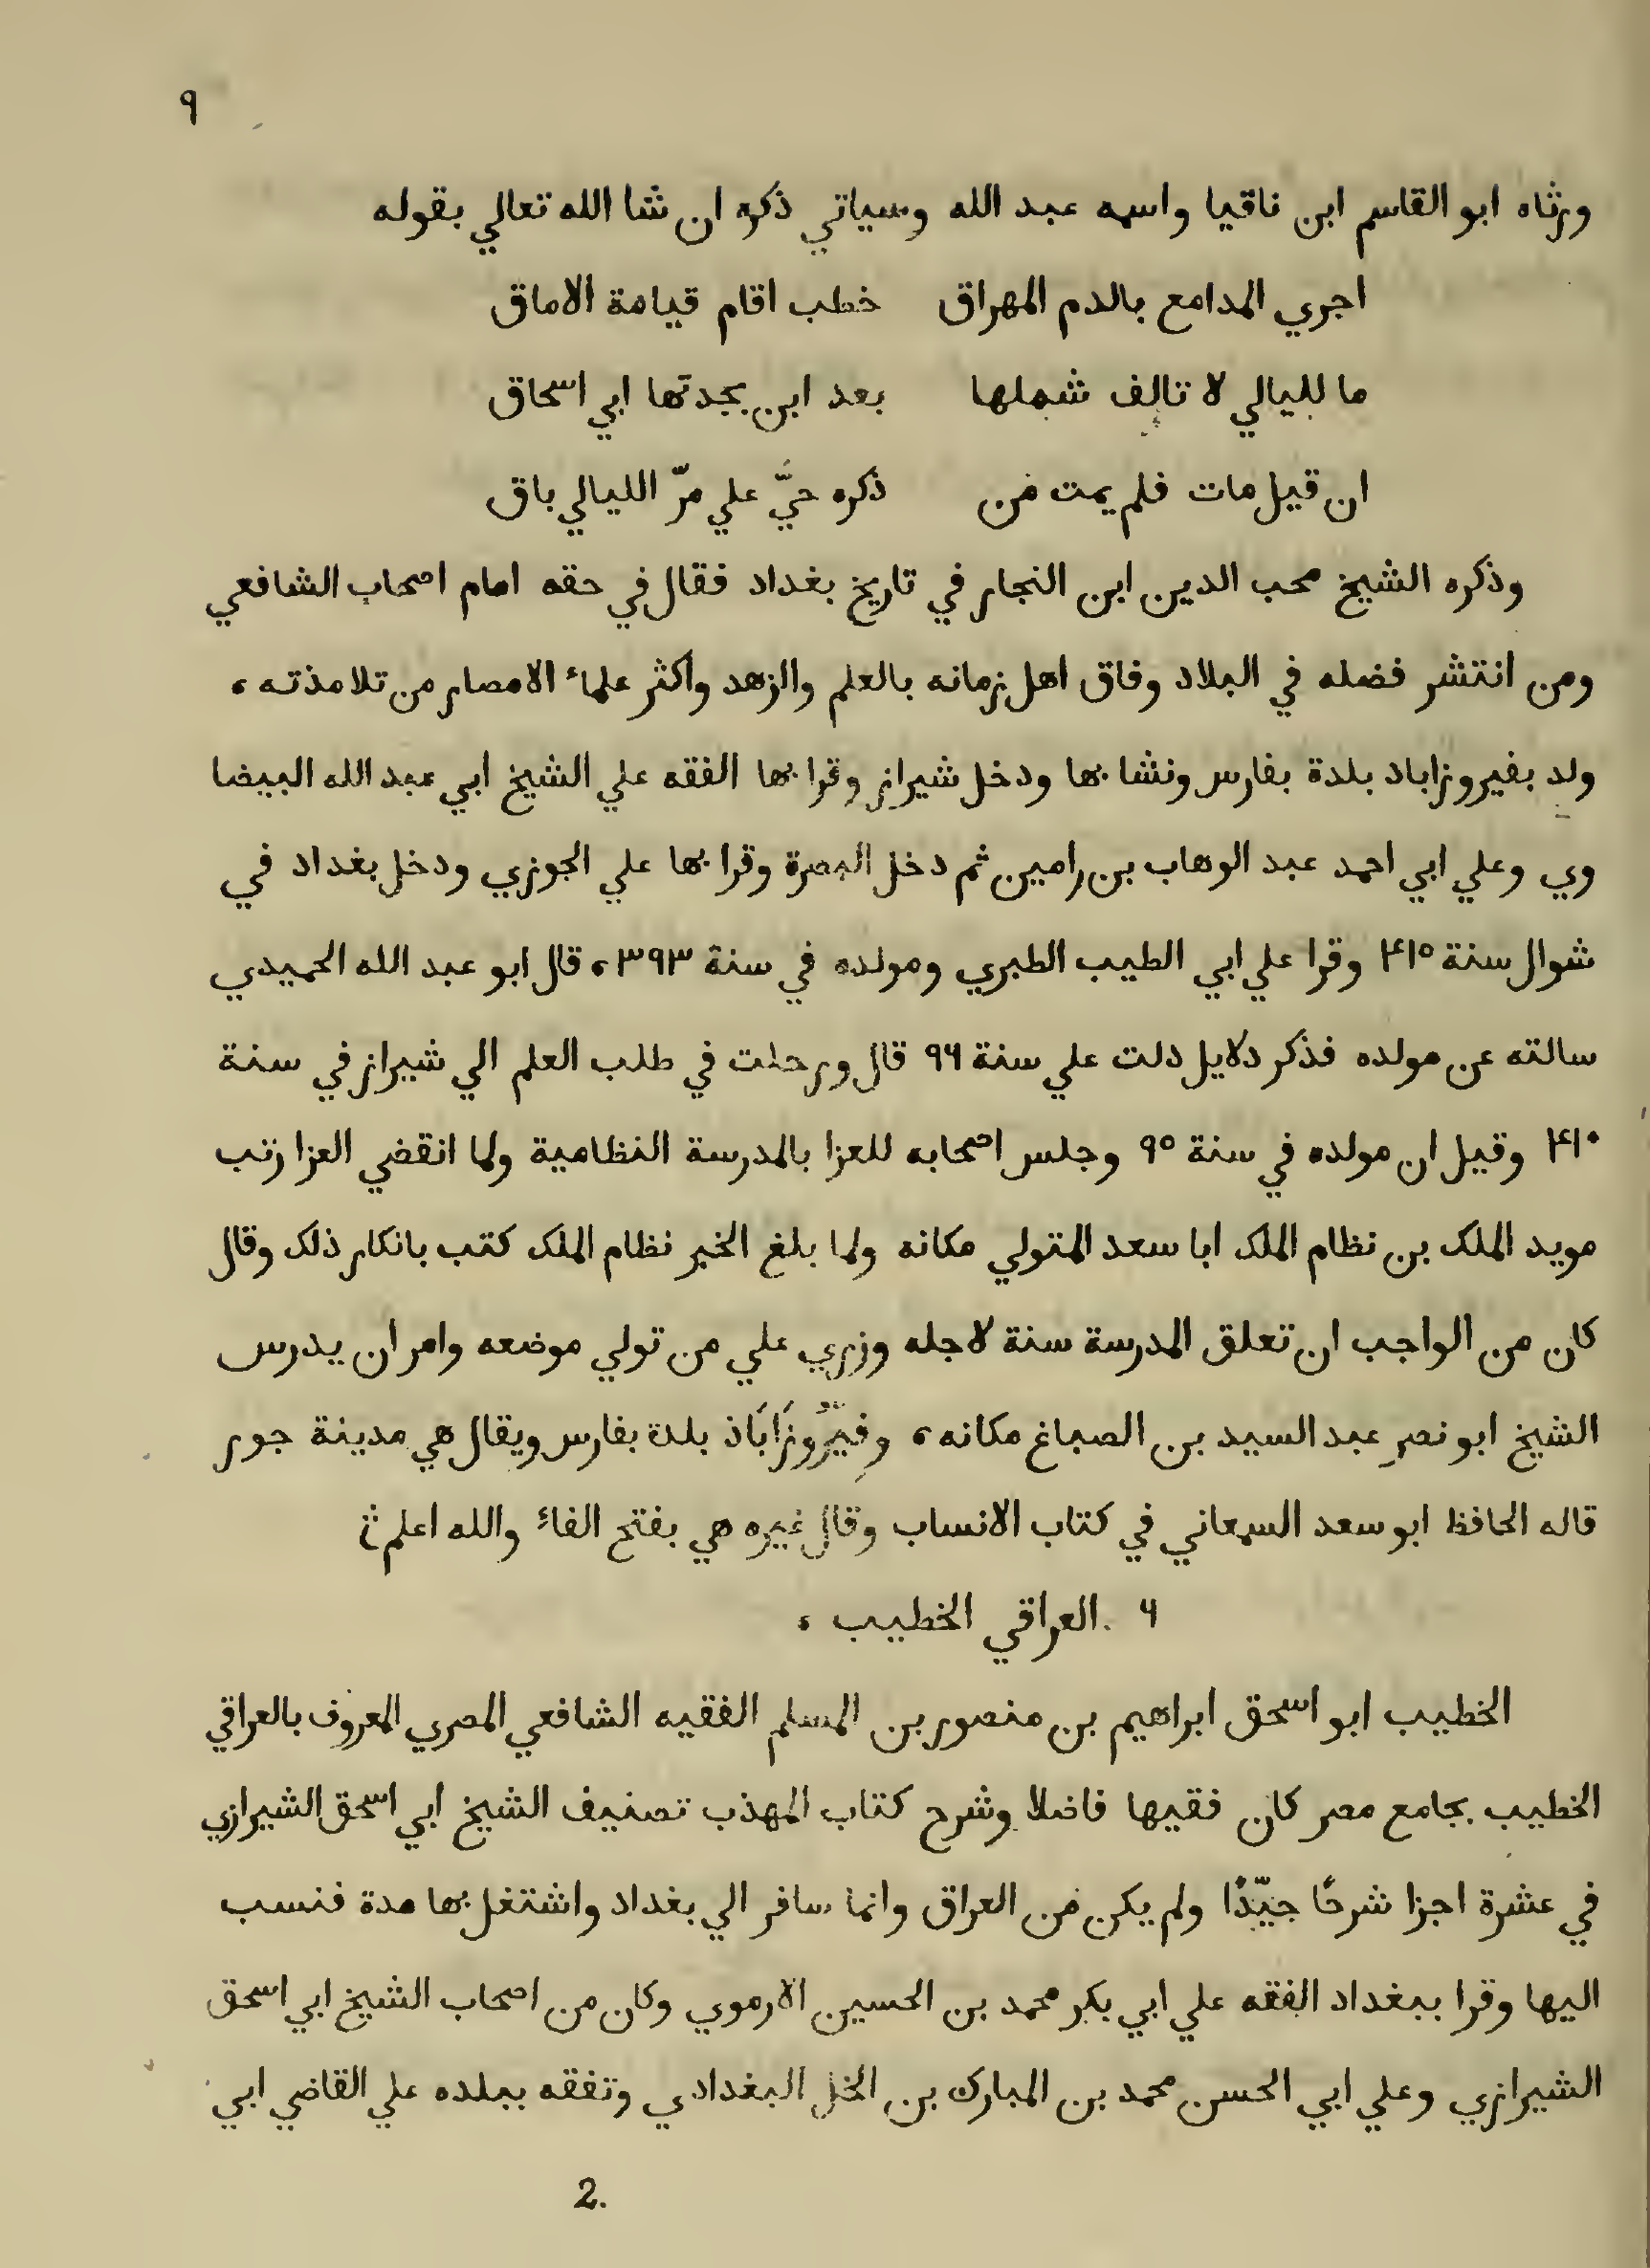 ٩
ورثاه ابو القاسم ابن ناقيا واسمه عبد الله وسياتي ذكره ان شا الله تعالي بقوله
اجري المدامع بالدم المهراق خطب اقام قيامة الاماق
ما لليالي لا تالف شملها بعد ابن بجدتها ابي اسحاق
ان قيل مات فلم يمت من ذكره حيَّ علي مرّ الليالي باق
وذكره الشيخ محب الدين ابن النجار في تاريخ بغداد فقال في حقه امام اصحاب الشافعي
ومن انتشر فضله في البلاد وفاق اهل زمانه بالعلم والزهد واكثر علماء الامصار من تلامذته ،
ولد بفيروزاباد بلدة بفارس ونشا بها ودخل شيراز وقرا بها الفقه علي الشيخ ابي عبد الله البيضا
وي وعلي ابي احمد عبد الوهاب بن رامين ثم دخل البصرة وقرا بها علي الجوزي ودخل بغداد في
شوال سنة ۴۱۵ وقرا علي ابي الطيب الطبري ومولده في سنة ٣٩٣ ، قال ابو عبد الله الحميدي
سالته عن مولده فذكر دلايل دلت علي سنة ٩۶ قال ورحلت في طلب العلم الي شيراز في سنة
۴۱۰ وقيل ان مولده في سنة ٩۵ وجلس اصحابه للعزا بالمدرسة النظامية ولما انقضي العزا رتب
مويد الملك بن نظام الملك ابا سعد المتولي مكانه ولما بلغ الخبر نظام الملك كتب بانكار ذلك وقال
كان من الواجب ان تعلق المدرسة سنة لاجله وزري علي من تولي موضعه وامر ان يدرس
الشيخ ابو نصر عبد السيد بن الصباغ مكانه ، وفِيَّرُوزَابَاذ بلدة بفارس ويقال هي مدينة جور
قاله الحافظ ابو سعد السمعاني في كتاب الانساب وقال غيره هي بفتح الفاء والله اعلم
۶ . العراقي الخطيب ،
الخطيب ابو اسحق ابراهيم بن منصور بن المسلم الفقيه الشافعي المصري المعروف بالعراقي
الخطيب بجامع مصر كان فقيها فاضلا وشرح كتاب المهذب تصنيف الشيخ ابي اسحق الشيرازي
في عشرة اجزا شرحًا جيّدًا ولم يكن من العراق وانما سافر الي بغداد واشتغل بها مدة فنسب
اليها وقرا ببغداد الفقه علي ابي بكر محمد بن الحسين الارموي وكان من اصحاب الشيخ ابي اسحق
الشيرازي وعلي ابي الحسن محمد بن المبارك بن الخل البغدادي وتفقه ببلده علي القاضي ابي
2.